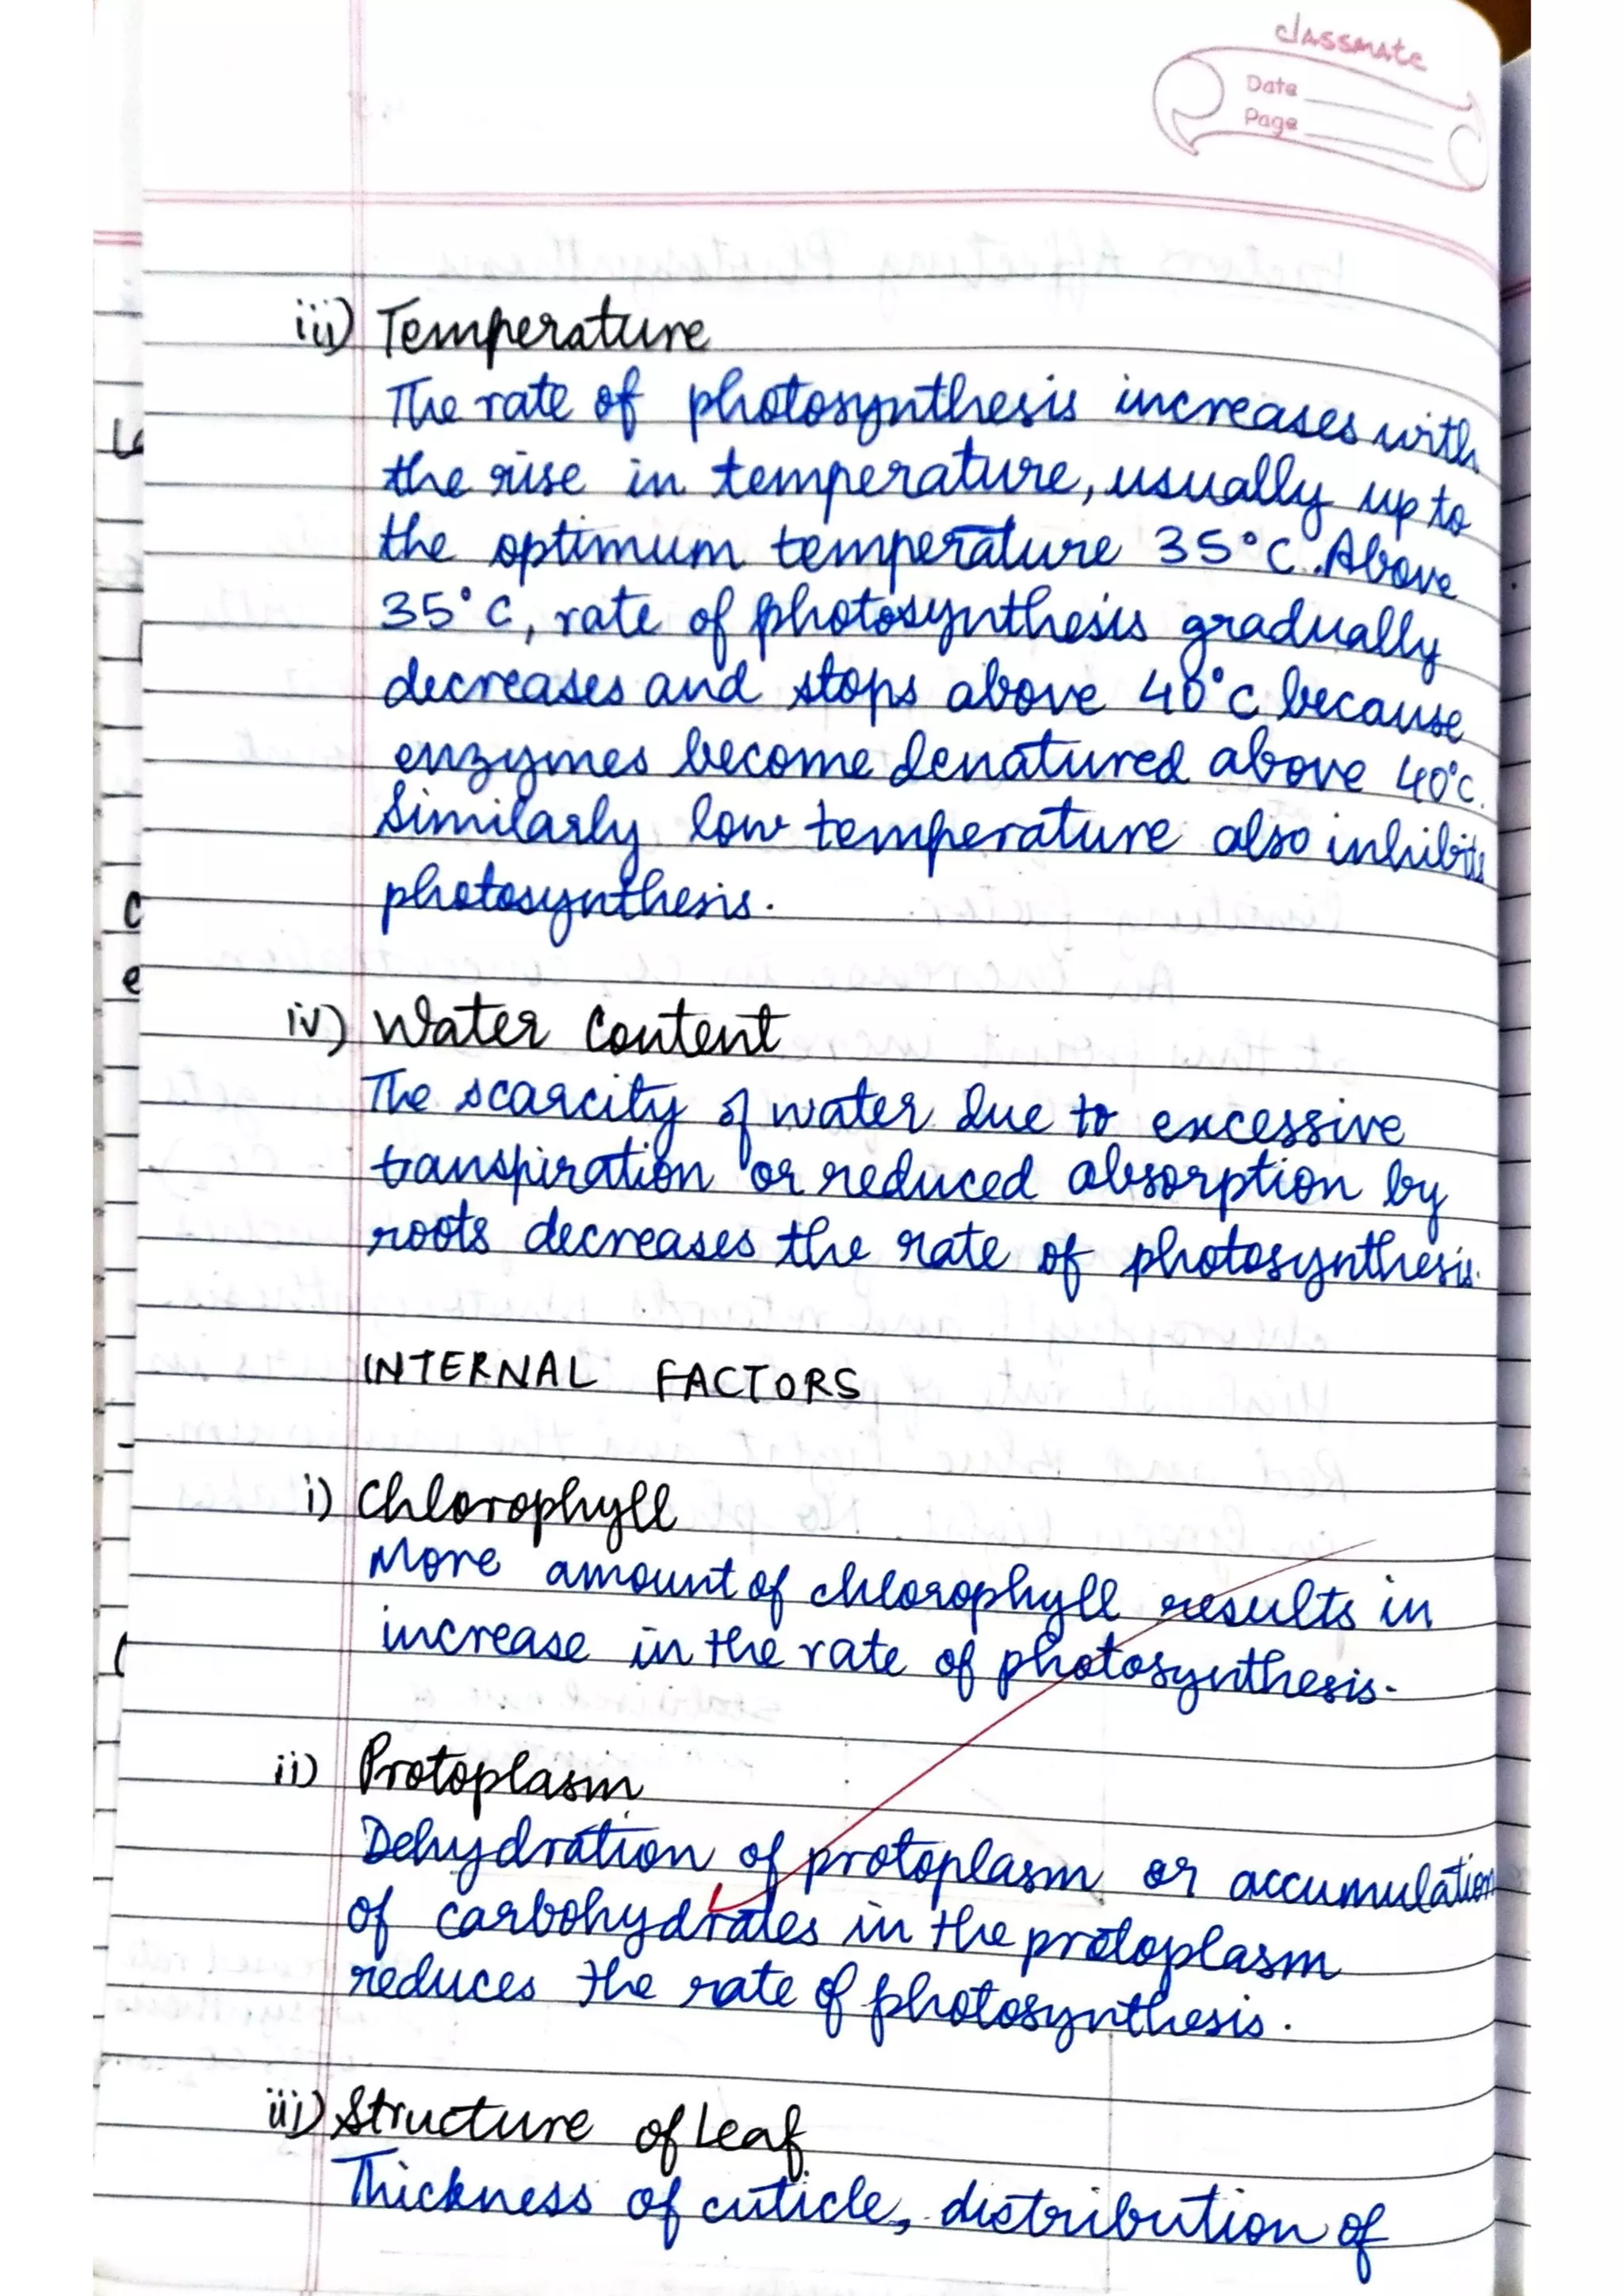 classmate
Date
Page
iii) Temperature
The rate of photosynthesis increases with
the rise in temperature, usually up to
the optimum temperature 35°C. Above
35°C, rate of photosynthesis gradually
decreases and stops above 40°C because
enzymes become denatured above 40°C.
Similarly low temperature also inhibits
photosynthesis.
iv) Water Content
The scarcity of water due to excessive
transpiration or reduced absorption by
roots decreases the rate of photosynthesis.
INTERNAL FACTORS
i) Chlorophyll
More amount of chlorophyll results in
increase in the rate of photosynthesis.
ii) Protoplasm
Dehydration of protoplasm or accumulation
of carbohydrates in the protoplasm
reduces the rate of photosynthesis.
iii) Structure of Leaf
Thickness of cuticle, distribution of